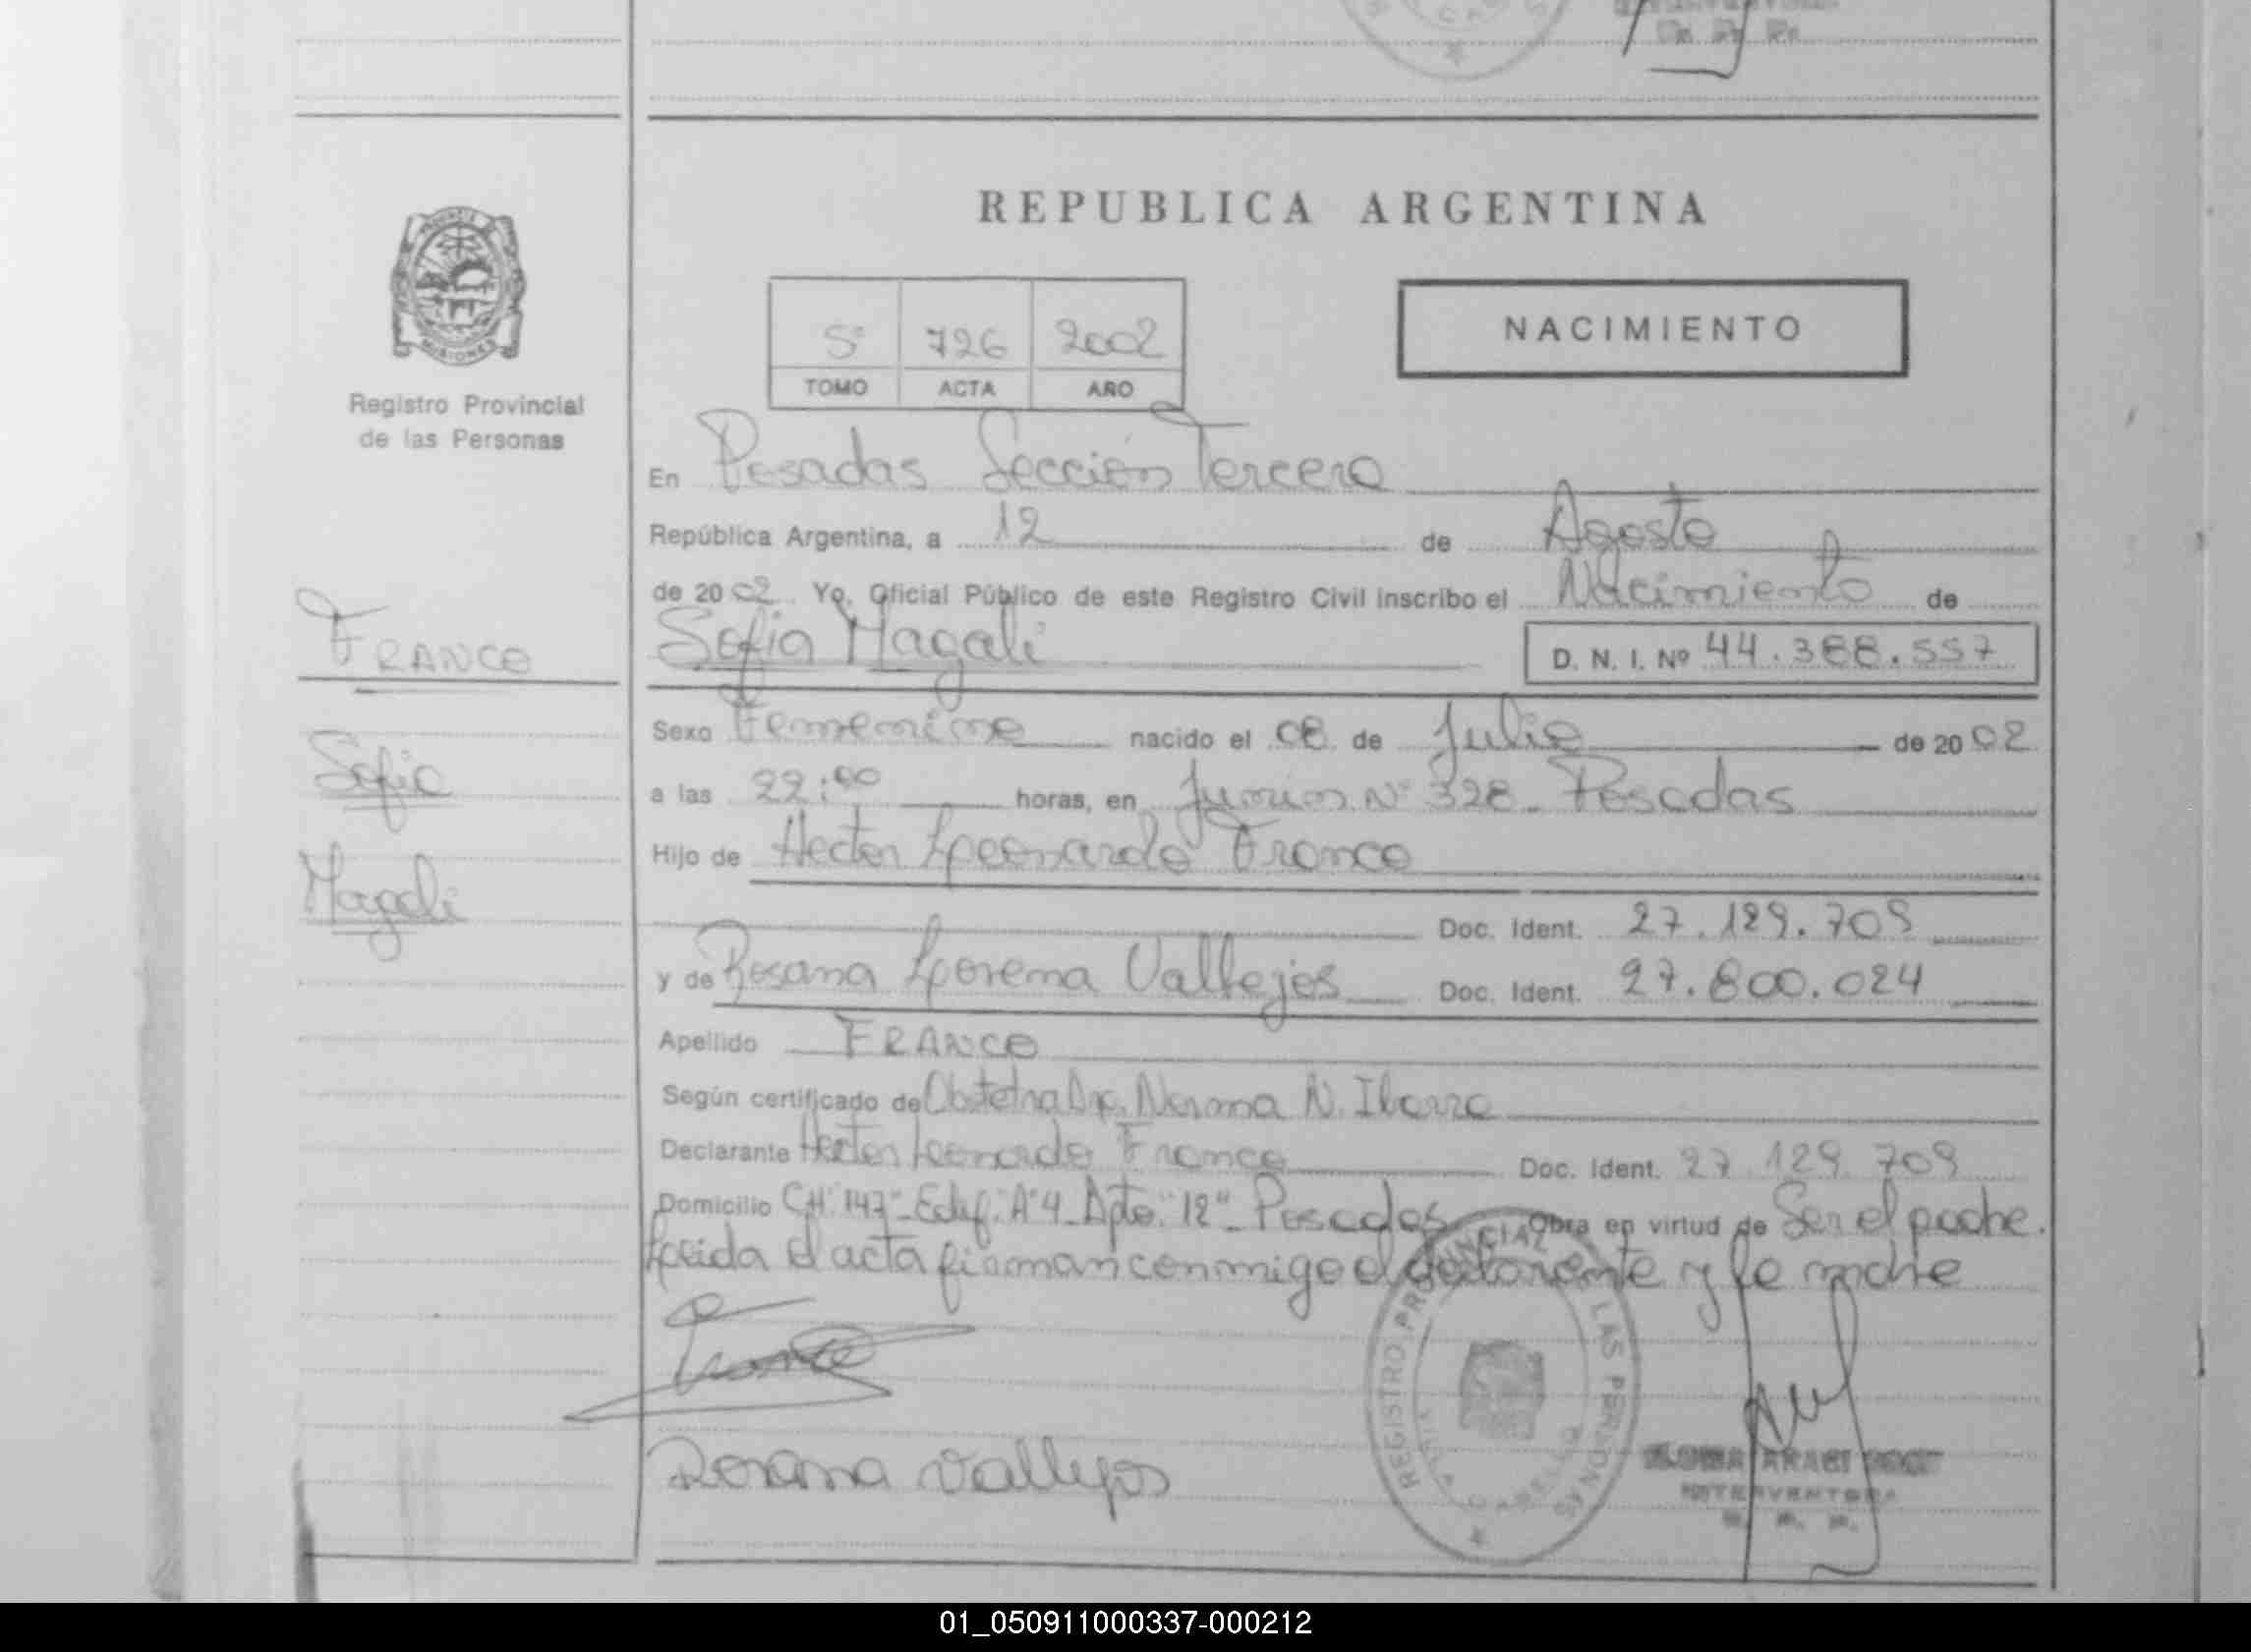 REPUBLICA ARGENTINA
5º 726 2002
TOMO ACTA AÑO
NACIMIENTO
MISIONES
Registro Provincial
de las Personas
En Posadas Sección Tercera
República Argentina, a 12 de Agosto
de 2002 Yo, Oficial Público de este Registro Civil inscribo el Nacimiento de
Sofia Magali
D. N. I. Nº 44.388.557
FRANCO
Sofia
Magali
Sexo Femenino nacido el 08 de Julio de 2002
a las 22:00 horas, en Junin Nº 328 - Posadas
Hijo de Hector Leonardo Franco
Doc. Ident. 27.129.709
y de Rosana Lorena Vallejos Doc. Ident. 27.800.024
Apellido FRANCO
Según certificado de Obstetra Norma N. Ibarra
Declarante Hector Leonardo Franco Doc. Ident. 27.129.709
Domicilio CH. 147 - Edif. A 4 - Apto. "12" - Posadas Obra en virtud de Ser el padre.
Leida el acta firman conmigo el declarante y la madre
Franco
Rosana Vallejos
REGISTRO PROVINCIAL DE LAS PERSONAS
INTERVENTORA
01_050911000337-000212